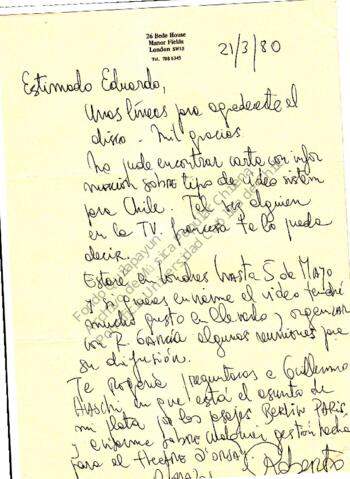 26 Bede House
Manor Fields
London SW15
Tel. 788 6345
21/3/80
Estimado Eduardo,
Unas líneas para agradecerte el
disco. Mil gracias
No pude encontrar carta con infor
mación sobre tipo de video sistem
para Chile. Tal vez alguien
en la TV. francesa te lo pueda
decir.
Estaré en Londres hasta 5 de Mayo
y si puedes enviarme el video tendré
mucho gusto en llevarlo y organizar
con R. García algunas reuniones para
su difusión.
Te rogaría preguntaras a Guillermo
en que está el asunto de
mi plata por los pasajes Berlin Paris
y informe sobre cualquier gestión hecha
para el Theatre D'Orsay
Roberto